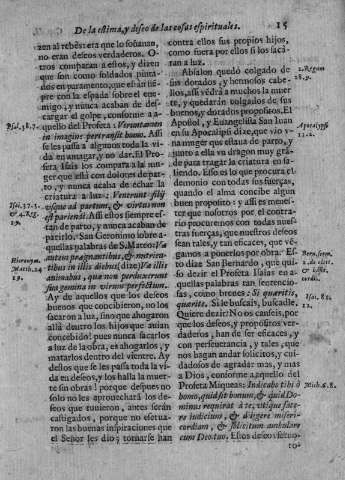 De la estima, y deseo de las cosas espirituales. 15
zen al rebés: era que lo soñauan,
no eran deseos verdaderos. O-
tros comparan a estos, y dizen
que son como soldados pinta-
dos en paramento, que está siẽ-
pre con la espada sobre el ene-
migo, y nunca acaban de des-
cargar el golpe, conforme a a-
quello del Profeta: Verumtamen
in imagine pertransit homo. Assi
se les passa a algunos toda la vi-
da en amagar, y no dar. El Pro-
feta Isaías los compara a la mu-
ger que está con dolores de par-
to, y nunca acaba de echar la
criatura a luz: Venerunt filij
vsque ad partum, & virtus non
est pariendi. Assi estos siempre es-
tan de parto, y nunca acaban de
parirlo. San Geronimo sobre a-
quellas palabras de S. Mateo: Væ
autem prægnantibus, & nutrien-
tibus in illis diebus; dize: Væ illis
animabus, quæ non perduxerunt
sua genima in virum perfectum.
Ay de aquellos que los deseos
buenos que concibieron, no los
sacaron a luz, sino que ahogaron
allá dentro los hijos que auian
concebido! pues nunca sacarlos
a luz de la obra, es ahogarlos, y
matarlos dentro del vientre. Ay
destos que se les passa toda la vi-
da en deseos, y los halla la muer-
te sin obras! porque despues no
solo no les aprouechará los de-
seos que tuuieron, antes serán
castigados, porque no pusieron
en las buenas inspiraciones que
el Señor les dió; tornarse han
contra ellos sus propios hijos,
como fuera por ellos si los saca-
ran a luz.
Absalon quedó colgado de
sus dorados, y hermosos cabe-
llos, assi vẽdrá a muchos la muer
te, y quedarán colgados de sus
buenos, y dorados propositos. El
Apostol, y Euangelista San Iuan
en su Apocalipsi dize, que vio v-
na muger que estaua de parto, y
junto a ella vn dragon muy grã-
de para tragar la criatura en sa-
liendo. Esso es lo que procura el
demonio con todas sus fuerças,
quando el alma concibe algun
buen proposito: y assi es menes-
ter que nosotros por el contra-
rio procuremos con todas nues-
tras fuerças, que nuestros deseos
sean tales, y tan eficaces, que vẽ-
gamos a ponerlos por obra. Es-
to dize San Bernardo, que qui-
so dezir el Profeta Isaías en a-
quellas palabras tan sentencio-
sas, como breues: Si quæritis,
quærite. Si le buscais, buscadle.
Quiere dezir: No os canseis, por
que los deseos, y propositos ver-
daderos, han de ser eficaces, y
con perseuerancia, y tales, que
nos hagan andar solicitos, y cui-
dadosos de agradar mas, y mas
a Dios, conforme a aquello del
Profeta Miqueas: Indicabo tibi ò
homo, quid sit bonum, & quid Do-
minus requirat à te, vtique face-
re iudicium, & diligere miseri-
cordiam, & solicitum ambulare
cum Deo tuo. Estos deseos feruo-
ro
Psal. 38.7.
Isai. 37.3.
& 4. Reg.
19.
Hieronym.
Matth. 24
19.
2. Regum
18.9.
Apocalyps.
12.2.
Isai. 21.
12.
Mich. 6.8.